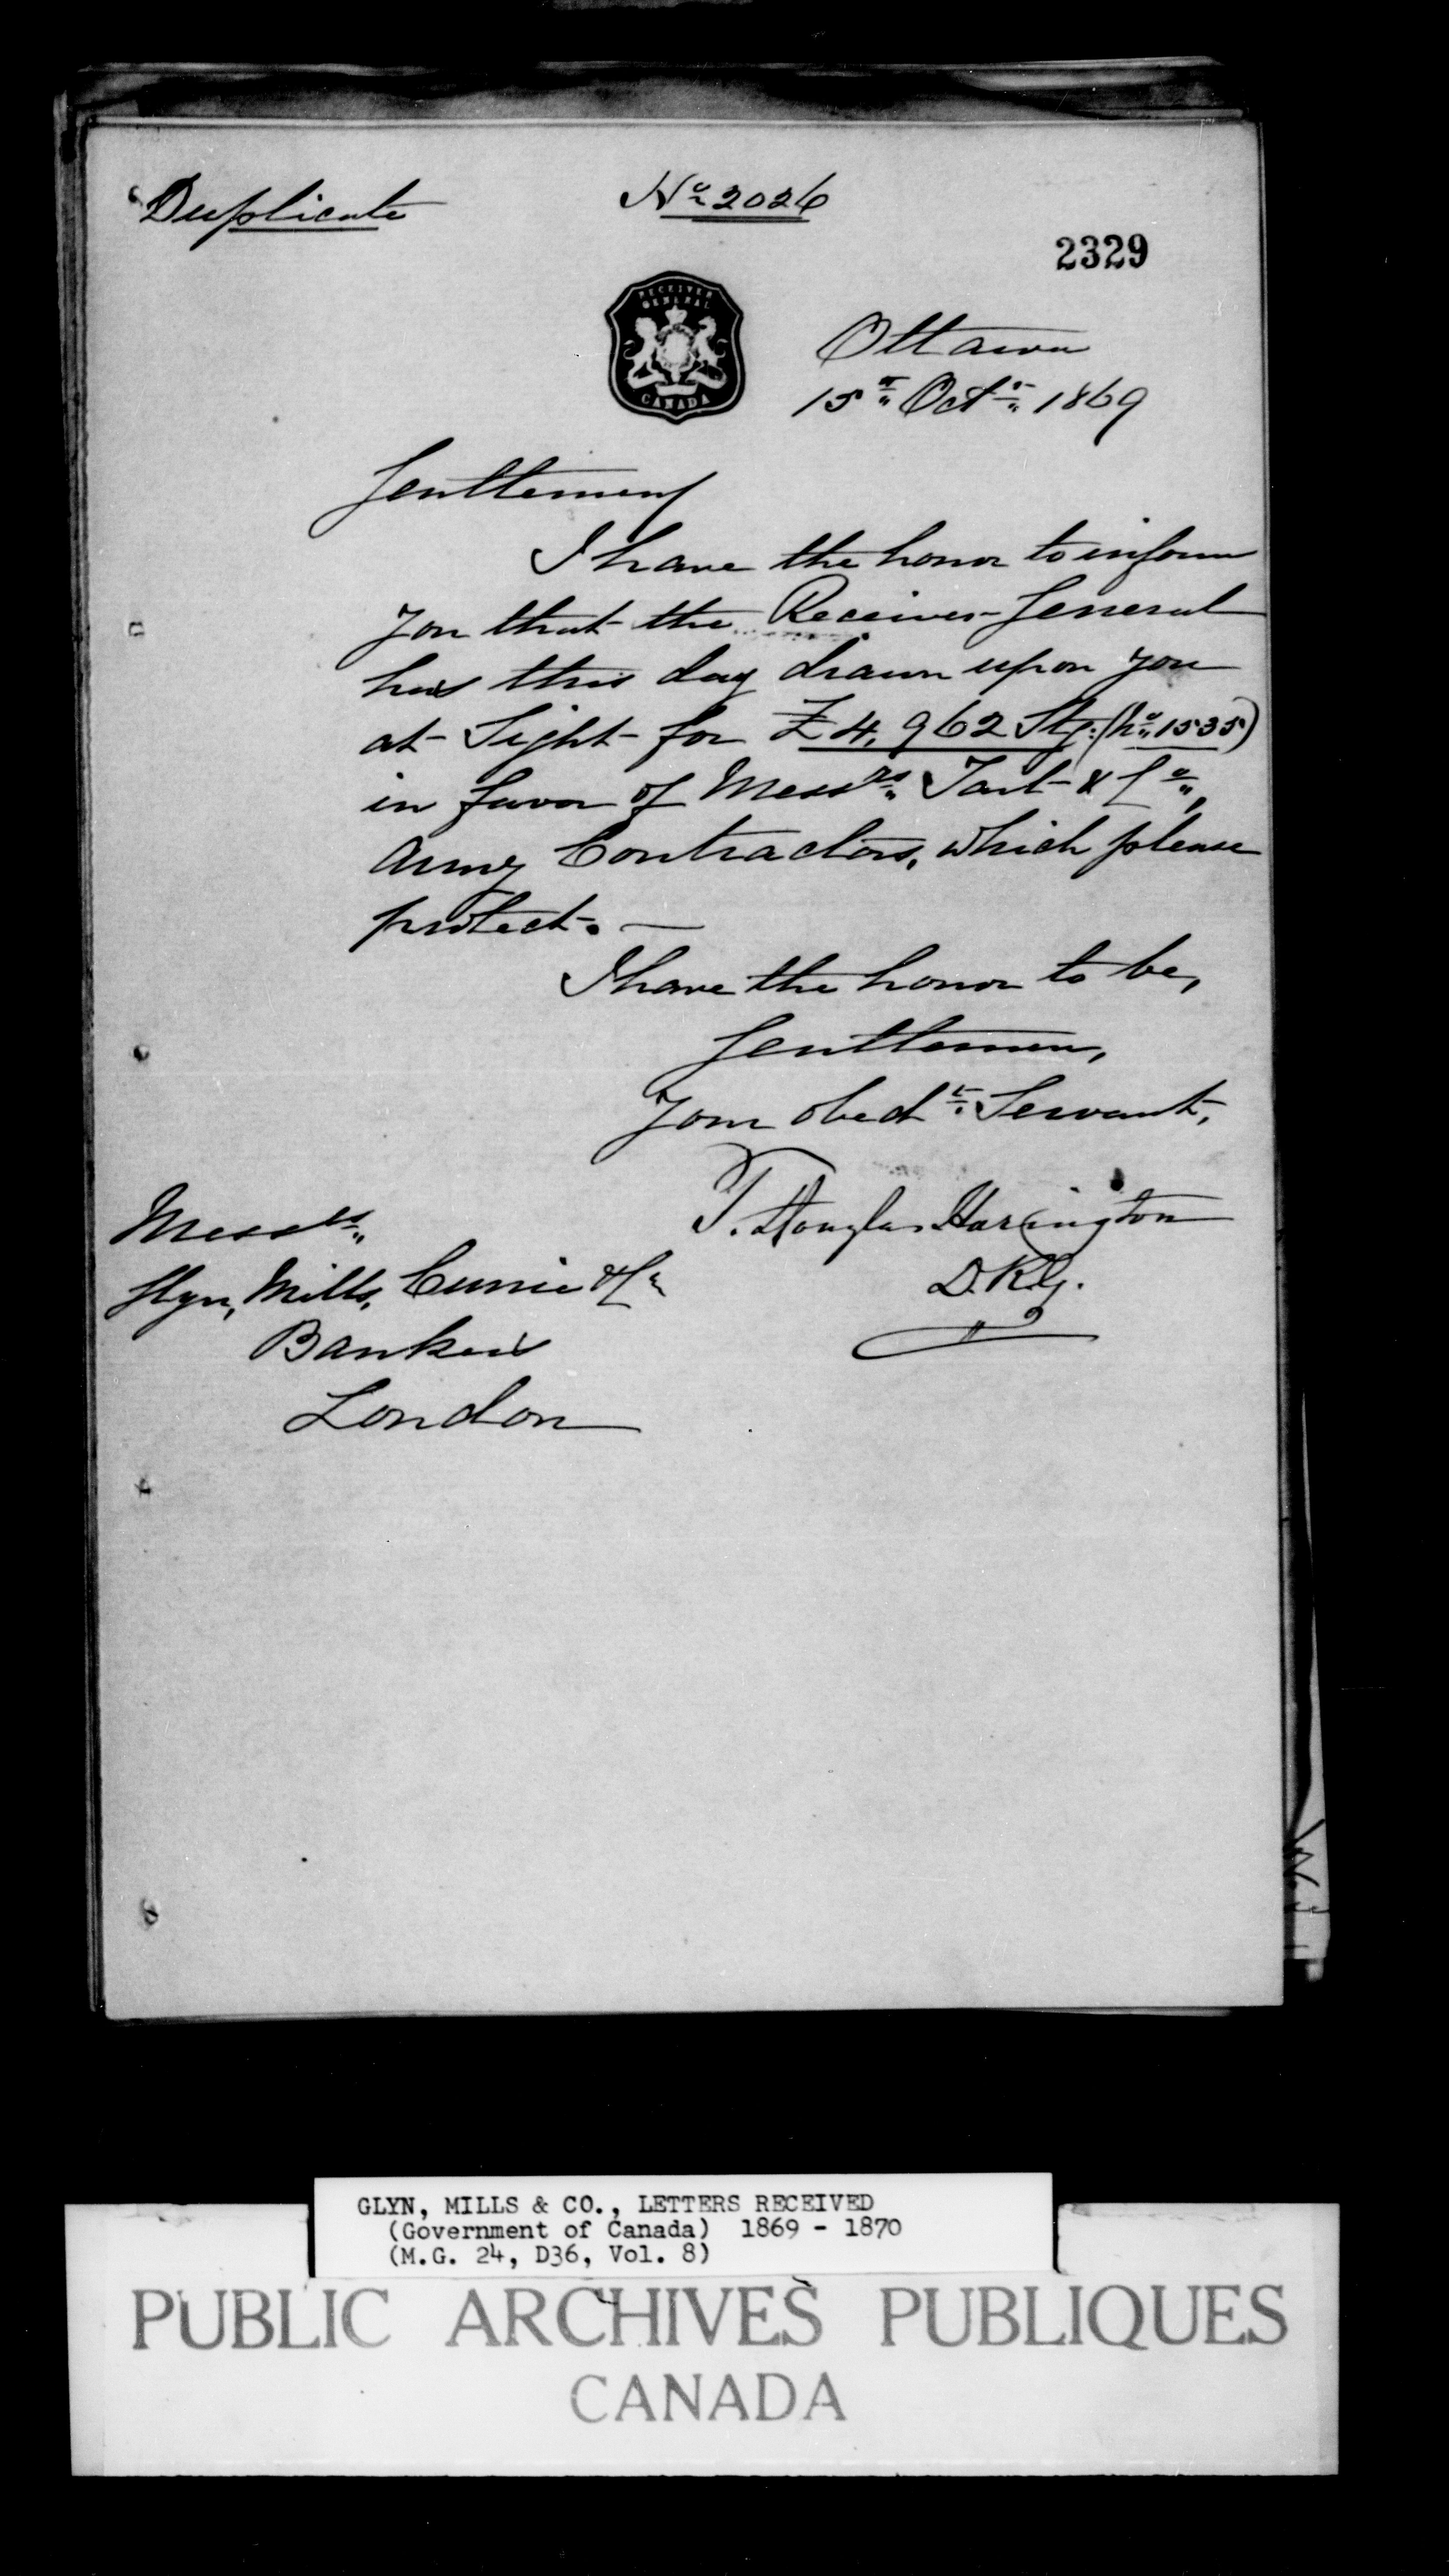 Duplicate
No 2026
2329
RECEIVER
GENERAL
CANADA
Ottawa
15th Octr 1869
Gentlemen
I have the honor to inform
you that the Receiver General
has this day drawn upon you
at Sight for £4,962 Stg: (No 1535)
in favor of Messrs Tait & Co,
Army Contractors, which please
protect. —
I have the honor to be,
Gentlemen,
Your obedt Servant,
T. Douglas Harington
D.R.G.
Messrs
Glyn, Mills, Currie & Co
Bankers
London
GLYN, MILLS & CO., LETTERS RECEIVED
(Government of Canada) 1869 - 1870
(M.G. 24, D36, Vol. 8)
PUBLIC ARCHIVES PUBLIQUES
CANADA